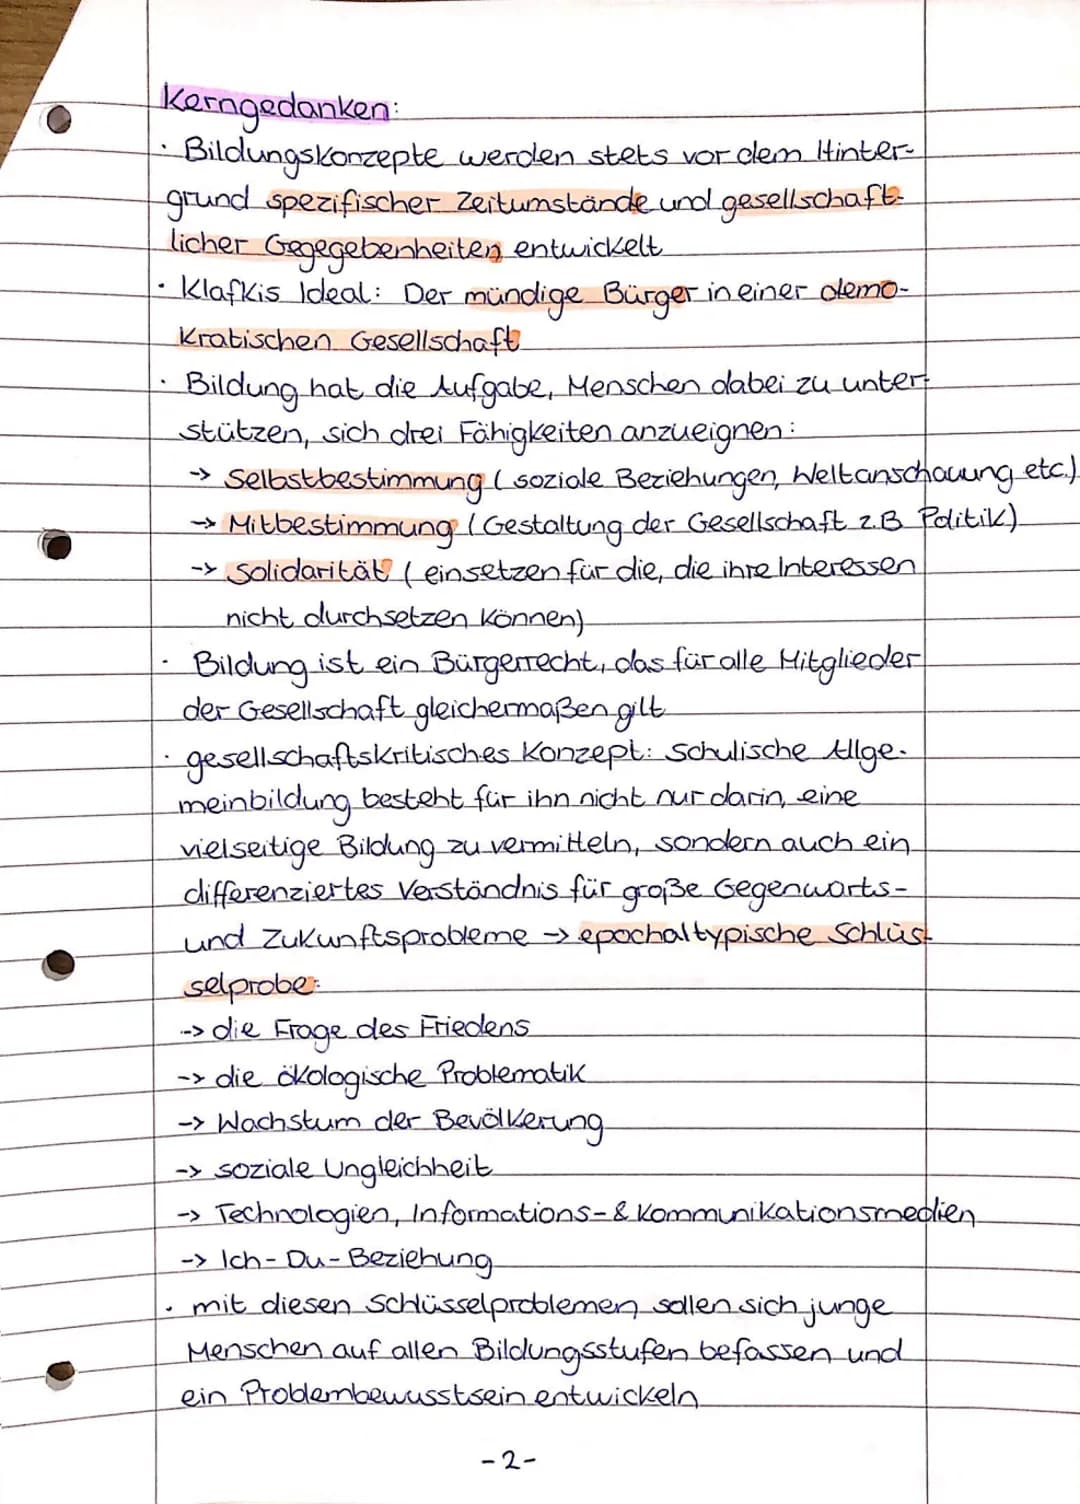 Kerngedanken:
· Bildungskonzepte werden stets vor dem Hinter-
grund spezifischer Zeitumstände und gesellschaft-
licher Gegegebenheiten entwickelt
· Klafkis Ideal: Der mündige Bürger in einer demo-
kratischen Gesellschaft
· Bildung hat die Aufgabe, Menschen dabei zu unter-
stützen, sich drei Fähigkeiten anzueignen:
-> Selbstbestimmung (soziale Beziehungen, Weltanschauung etc.)
-> Mitbestimmung (Gestaltung der Gesellschaft z.B Politik)
-> Solidarität (einsetzen für die, die ihre Interessen
nicht durchsetzen können)
· Bildung ist ein Bürgerrecht, das für alle Mitglieder
der Gesellschaft gleichermaßen gilt
· gesellschaftskritisches Konzept: schulische Allge-
meinbildung besteht für ihn nicht nur darin, eine
vielseitige Bildung zu vermitteln, sondern auch ein
differenziertes Verständnis für große Gegenwarts-
und Zukunftsprobleme -> epochaltypische Schlüs-
selprobe:
-> die Frage des Friedens
-> die ökologische Problematik
-> Wachstum der Bevölkerung
-> soziale Ungleichheit
-> Technologien, Informations- & Kommunikationsmedien
-> Ich-Du-Beziehung
· mit diesen Schlüsselproblemen sollen sich junge
Menschen auf allen Bildungsstufen befassen und
ein Problembewusstsein entwickeln
-2-